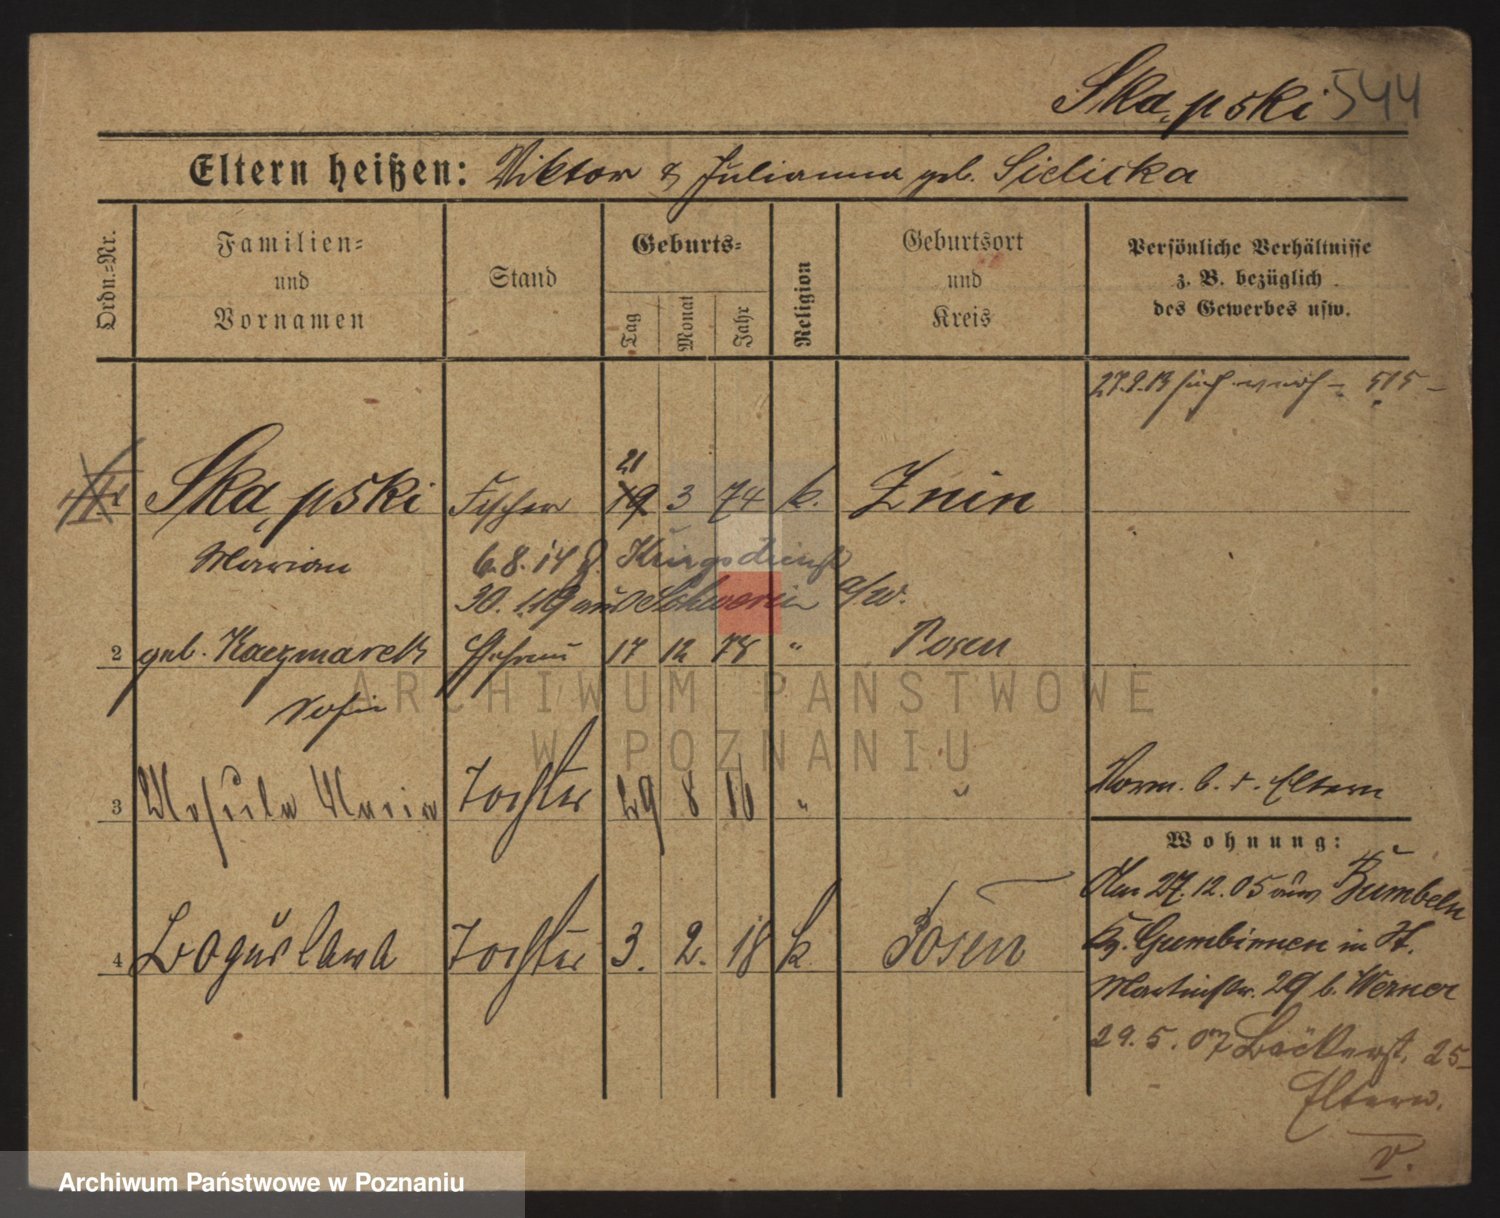 Skąpski 544
Eltern heißen: Viktor & Julianna geb. Sielicka
Ordn.=Nr.
Familien= und Vornamen
Stand
Geburts=
Tag
Monat
Jahr
Religion
Geburtsort und Kreis
Persönliche Verhältnisse z. B. bezüglich des Gewerbes usw.
27.9.13 515
21
Skąpski Fischer 19 3 74 k. Znin
Marian 6.8.14 z. Kriegsdienst
30.1.19 aus Schwerin a/W.
2 geb. Kaczmarek Ehefrau 17 12 78 " Posen
Sofie
3 Maria Tochter 29 8 16 " "
Eltern
Wohnung:
4 Boguslawa Tochter 3. 2. 18 k. Posen
Am 27.12.05 aus Bumbeln
Kr. Gumbinnen in St.
Martinstr. 29 b. Werner
29.5.07 Bäckerst. 25
Eltern.
v.
ARCHIWUM PAŃSTWOWE
W POZNANIU
Archiwum Państwowe w Poznaniu